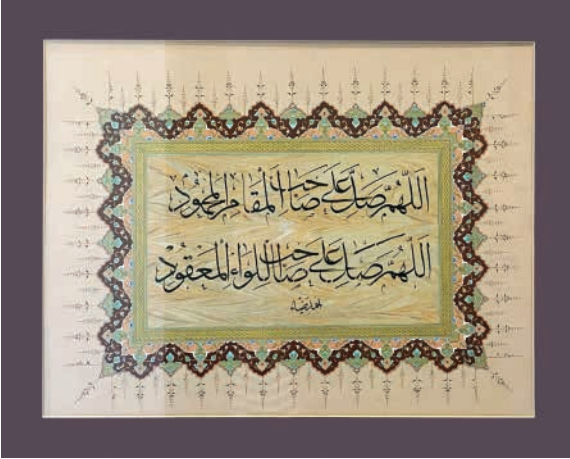 اللَّهُمَّ صَلِّ عَلَى صَاحِبِ الْمَقَامِ الْمَحْمُودْ
اللَّهُمَّ صَلِّ عَلَى صَاحِبِ اللِّوَاءِ الْمَعْقُودْ